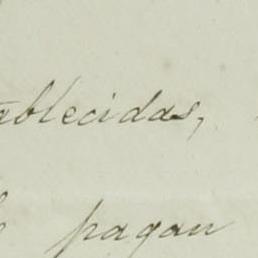 ablecidas,
pagan